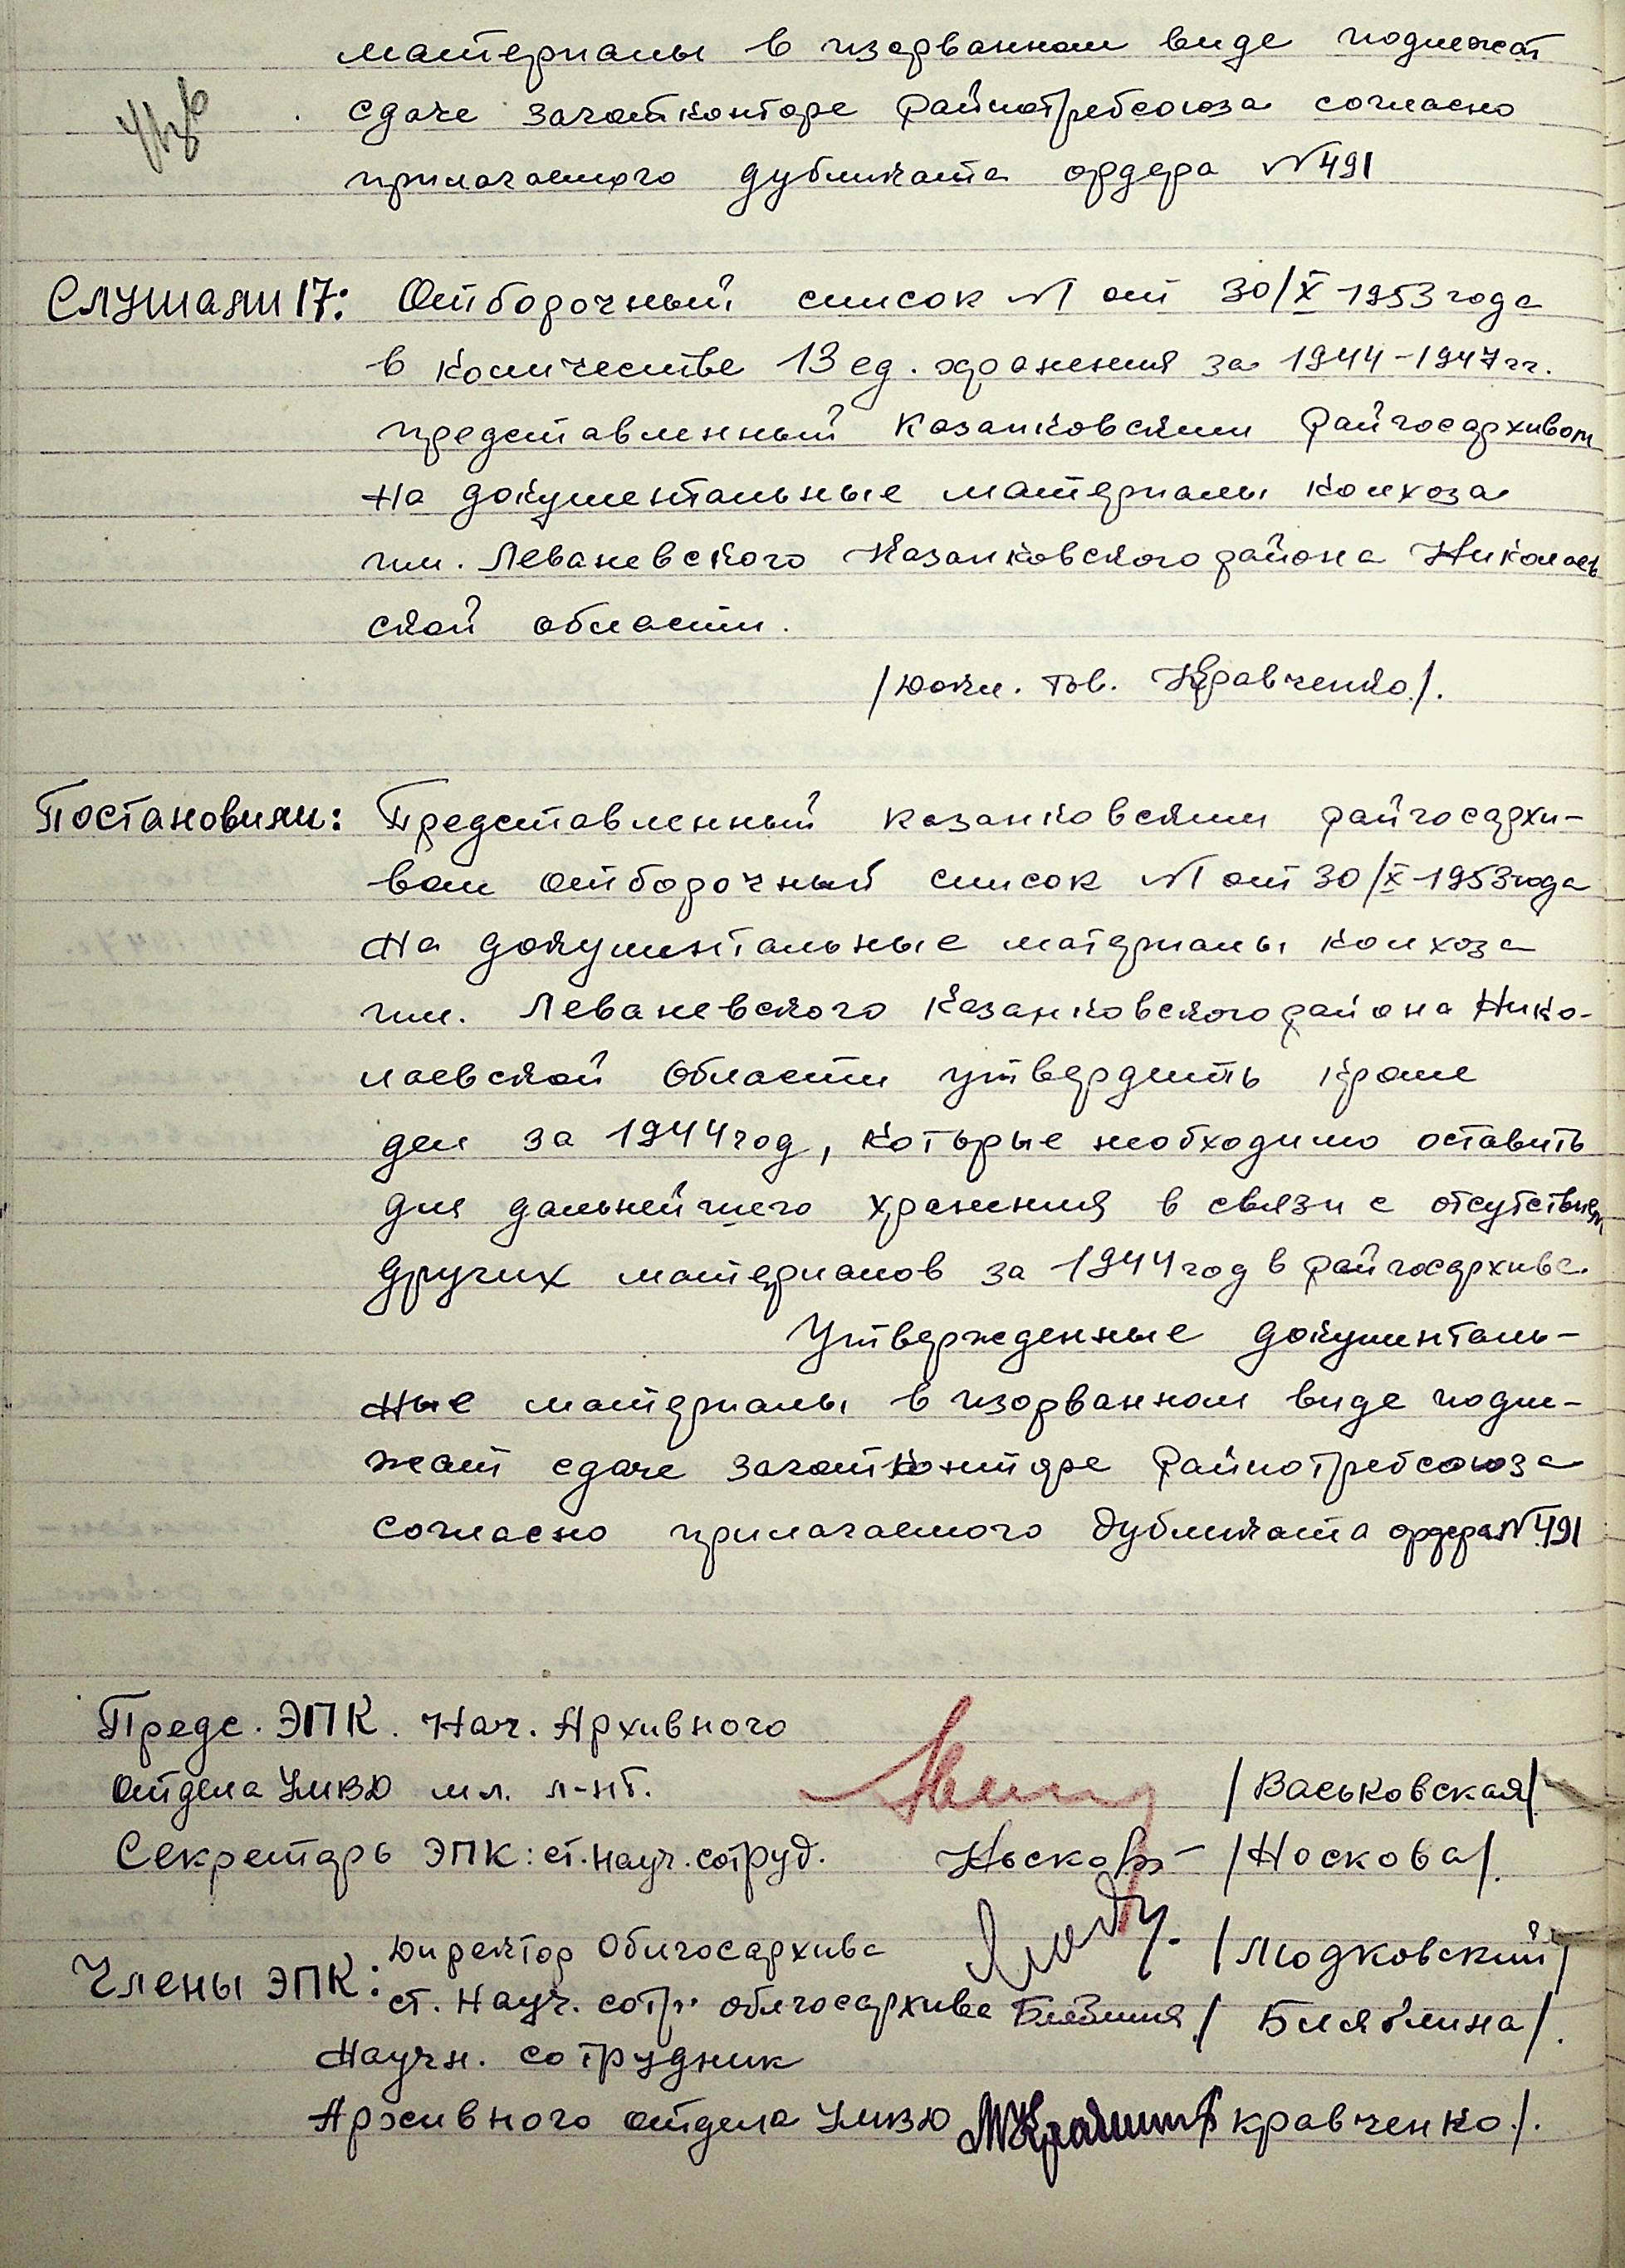 материалы в изорванном виде подлежат
сдаче заготконторе Райпотребсоюза согласно
прилагаемого дубликата ордера №491
Слушали 17: Отборочный список №1 от 30/X 1953 года
в количестве 13 ед. хранения за 1944-1947 гг.
представленный Казанковским Райгосархивом
на документальные материалы колхоза
им. Леваневского Казанковского района Николаев
ской области.
/Докл. тов. Кравченко/.
Постановили: Представленный Казанковским райгосархи-
вом отборочный список №1 от 30/X-1953 года
на документальные материалы колхоза
им. Леваневского Казанковского района Нико-
лаевской области утвердить кроме
дел за 1944 год, которые необходимо оставить
для дальнейшего хранения в связи с отсутствием
других материалов за 1944 год в райгосархиве.
Утвержденные документаль-
ные материалы в изорванном виде подле-
жат сдаче заготконторе Райпотребсоюза
согласно прилагаемого дубликата ордера №491
Предс. ЭПК. Нач. Архивного
отдела УМВД мл. л-нт. /Васьковская/
Секретарь ЭПК: ст. науч. сотруд. Носкова /Носкова/.
Члены ЭПК: Директор Облгосархива /Людковский/
ст. Науч. сотр. облгосархива Блябина / Бляблина/.
Научн. сотрудник
Архивного отдела УМВД Кравченко/.